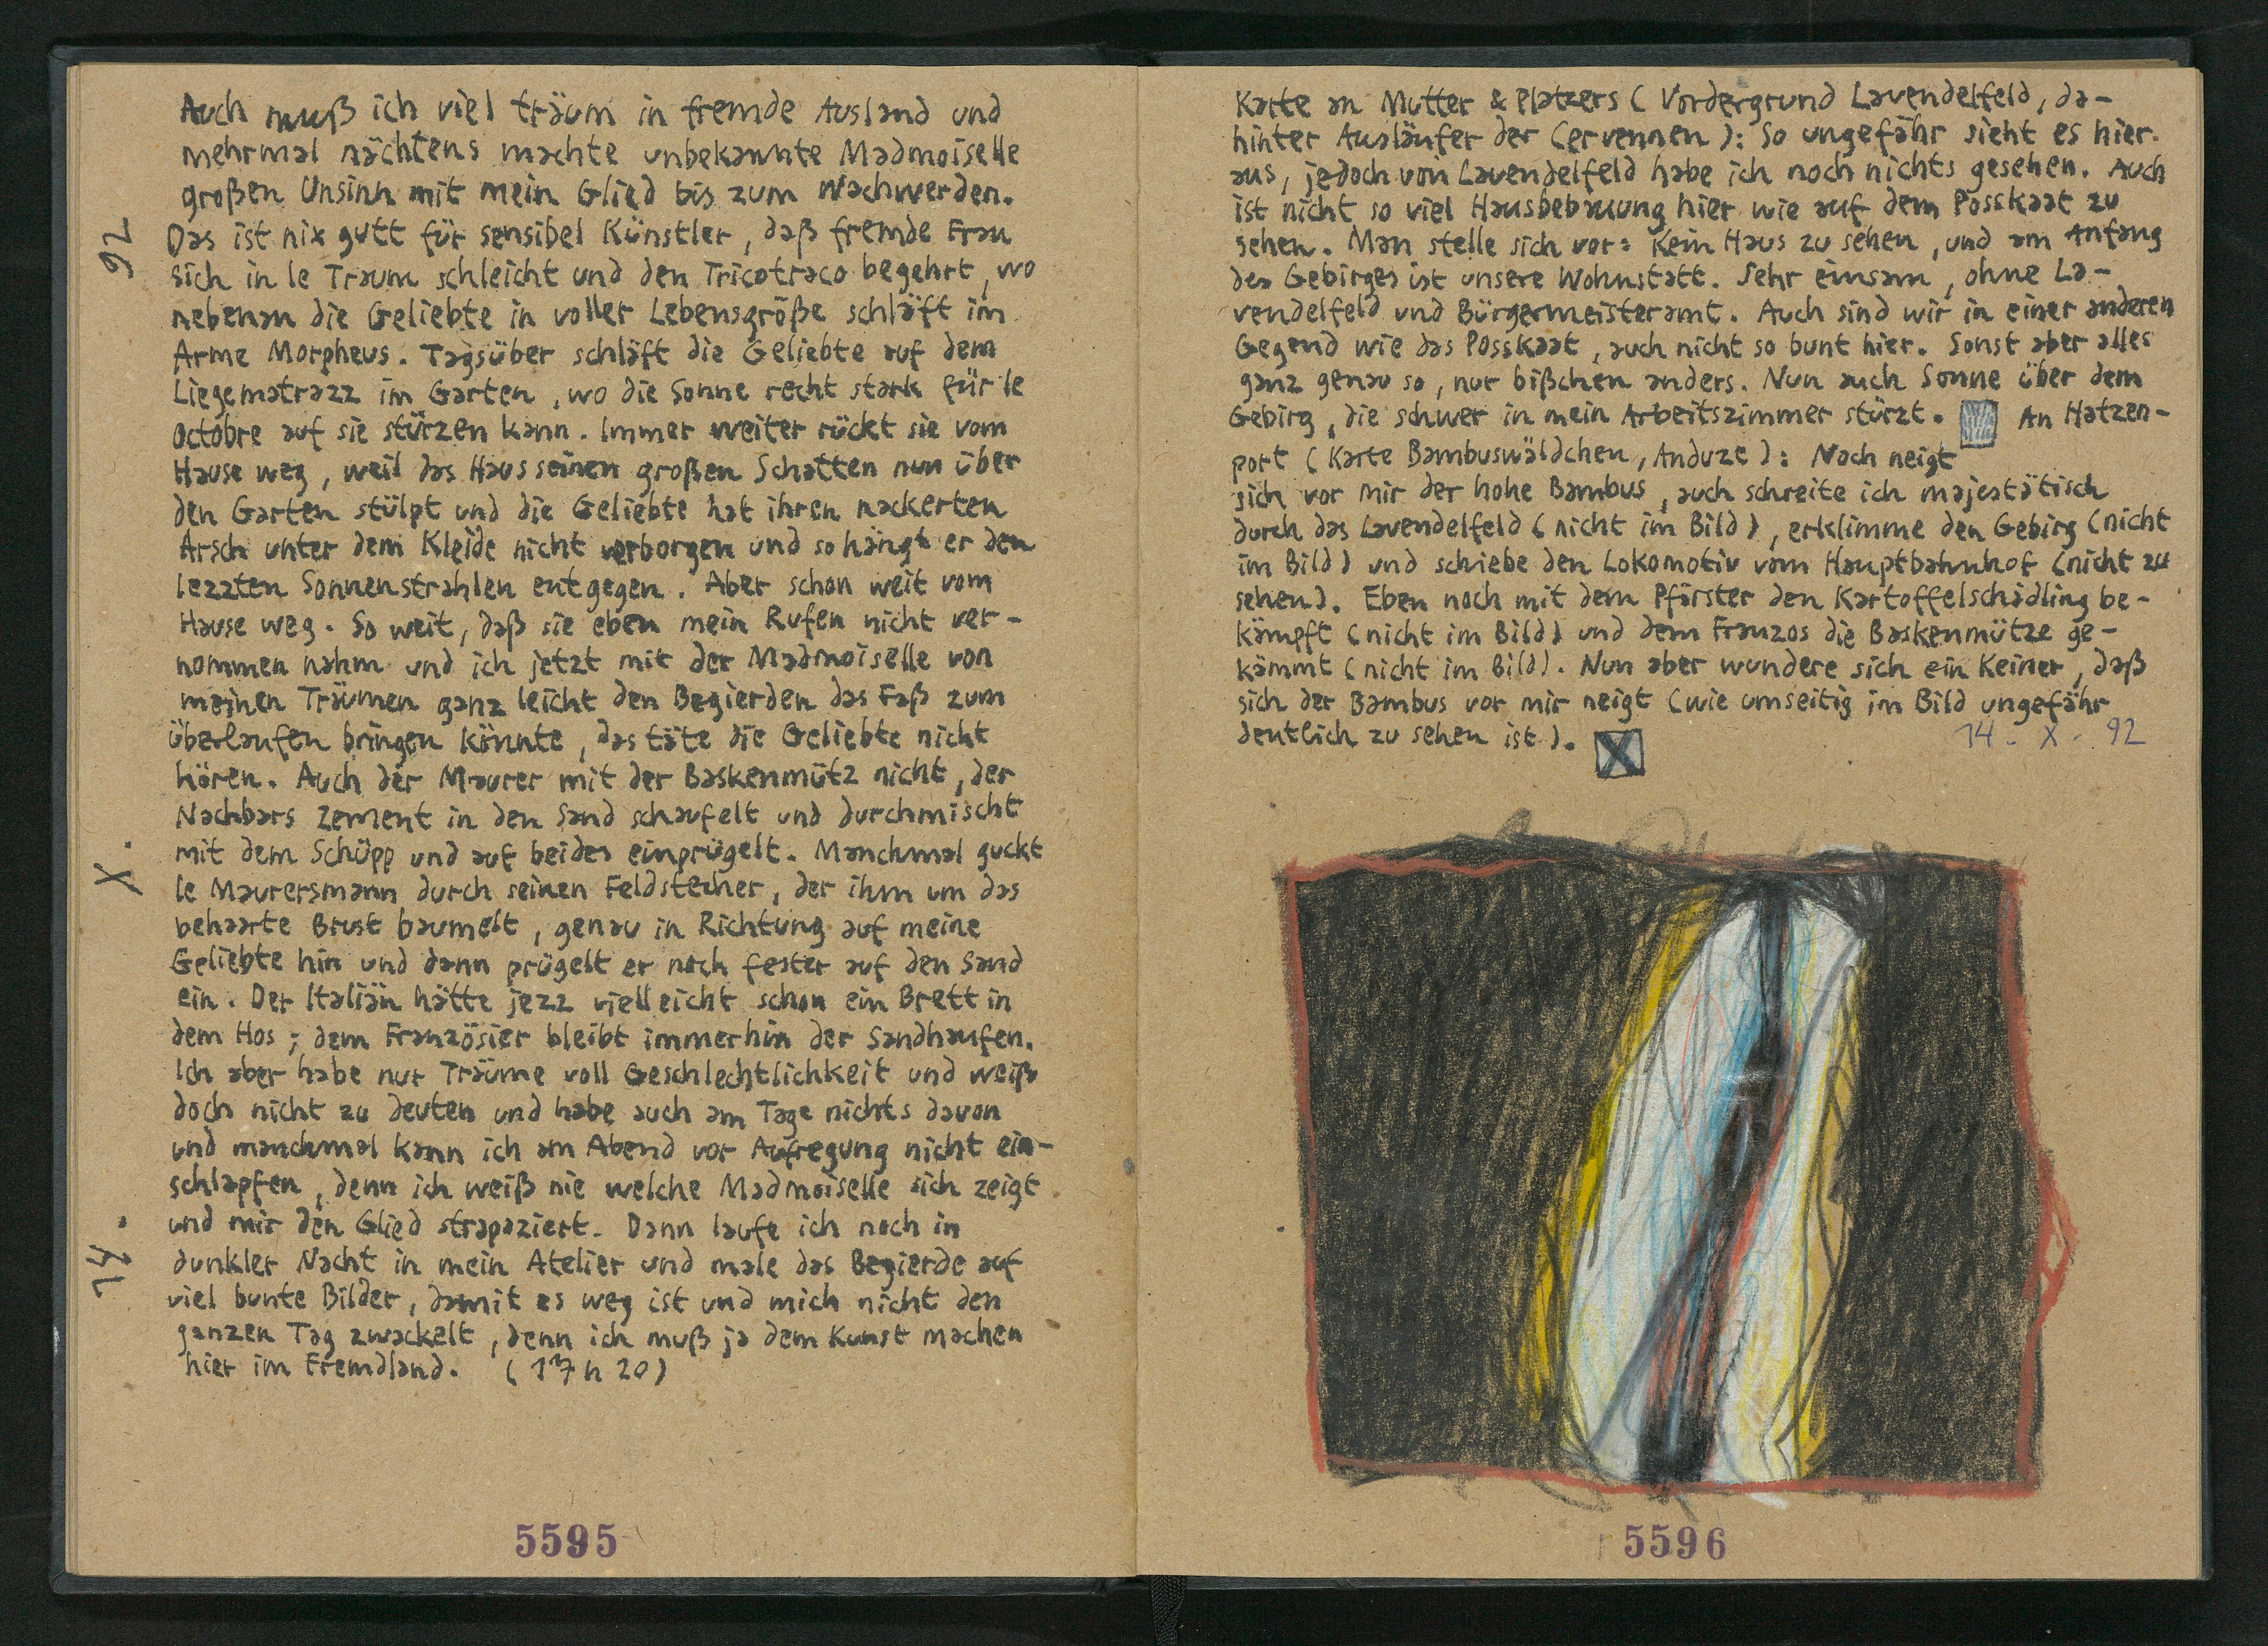 Auch muß ich viel träum in fremde Ausland und
mehrmal nächtens machte unbekannte Madmoiselle
großen Unsinn mit mein Glied bis zum Wachwerden.
Das ist nix gutt für sensibel Künstler, daß fremde Frau
sich in le Traum schleicht und den Tricotraco begehrt, wo
nebenan die Geliebte in voller Lebensgröße schläft im
Arme Morpheus. Tagsüber schläft die Geliebte auf dem
Liegematrazz im Garten, wo die Sonne recht stark für le
Octobre auf sie stürzen kann. Immer weiter rückt sie vom
Hause weg, weil das Haus seinen großen Schatten nun über
den Garten stülpt und die Geliebte hat ihren nackerten
Arsch unter dem Kleide nicht verborgen und so hängt er den
lezzten Sonnenstrahlen entgegen. Aber schon weit vom
Hause weg. So weit, daß sie eben mein Rufen nicht ver-
nommen nahm und ich jetzt mit der Madmoiselle von
meinen Träumen ganz leicht den Begierden das Faß zum
überlaufen bringen könnte, das täte die Geliebte nicht
hören. Auch der Maurer mit der Baskenmütz nicht, der
Nachbars Zement in den Sand schaufelt und durchmischt
mit dem Schüpp und auf beides einprügelt. Manchmal guckt
le Maurersmann durch seinen Feldstecher, der ihm um das
behaarte Brust baumelt, genau in Richtung auf meine
Geliebte hin und dann prügelt er noch fester auf den Sand
ein. Der Italiän hätte jezz vielleicht schon ein Brett in
dem Hos; dem Französier bleibt immerhin der Sandhaufen.
Ich aber habe nur Träume voll Geschlechtlichkeit und weiß
doch nicht zu deuten und habe auch am Tage nichts davon
und manchmal kann ich am Abend vor Aufregung nicht ein-
schlapfen, denn ich weiß nie welche Madmoiselle sich zeigt
und mir den Glied strapaziert. Dann laufe ich noch in
dunkler Nacht in mein Atelier und male das Begierde auf
viel bunte Bilder, damit es weg ist und mich nicht den
ganzen Tag zwackelt, denn ich muß ja dem Kunst machen
hier im Fremdland. (17h20)
14. X. 92
5595
Karte an Mutter & Platzers (Vordergrund Lavendelfeld, da-
hinter Ausläufer der Cervennen): So ungefähr sieht es hier
aus, jedoch von Lavendelfeld habe ich noch nichts gesehen. Auch
ist nicht so viel Hausbebauung hier wie auf dem Posskaat zu
sehen. Man stelle sich vor: Kein Haus zu sehen, und am Anfang
des Gebirges ist unsere Wohnstatt. Sehr einsam, ohne La-
vendelfeld und Bürgermeisteramt. Auch sind wir in einer anderen
Gegend wie das Posskaat, auch nicht so bunt hier. Sonst aber alles
ganz genau so, nur bißchen anders. Nun auch Sonne über dem
Gebirg, die schwer in mein Arbeitszimmer stürzt. An Hatzen-
port (Karte Bambuswäldchen, Anduze): Noch neigt
sich vor mir der hohe Bambus, auch schreite ich majestätisch
durch das Lavendelfeld (nicht im Bild), erklimme den Gebirg (nicht
im Bild) und schiebe den Lokomotiv vom Hauptbahnhof (nicht zu
sehen). Eben noch mit dem Pförster den Kartoffelschädling be-
kämpft (nicht im Bild) und dem Franzos die Baskenmütze ge-
kämmt (nicht im Bild). Nun aber wundere sich ein Keiner, daß
sich der Bambus vor mir neigt (wie umseitig im Bild ungefähr
deutlich zu sehen ist).
14. X. 92
5596